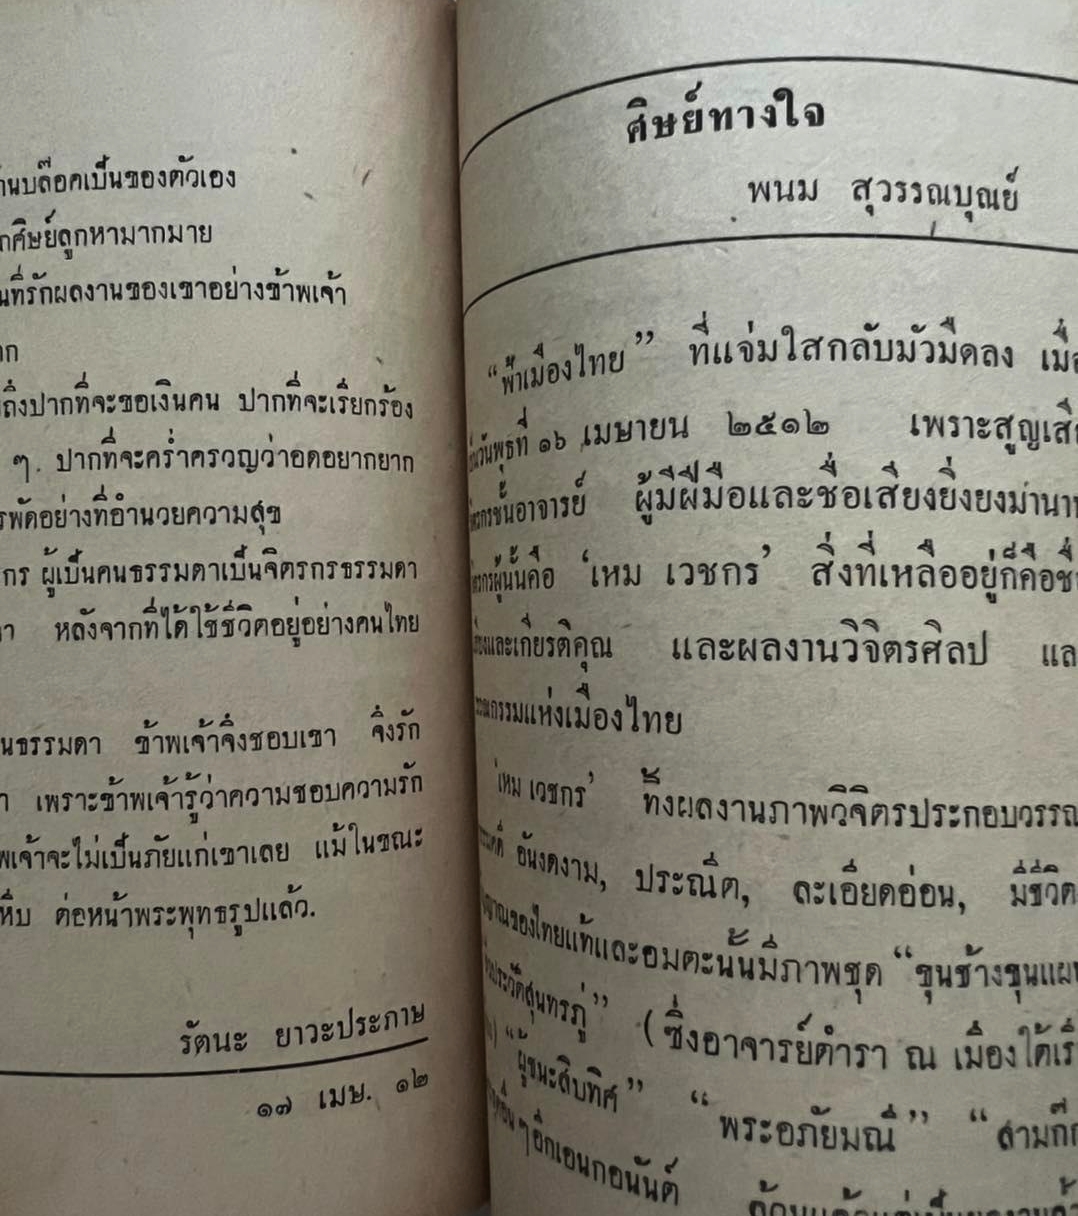 านบล๊อคเป็นของตัวเอง
กศิษย์ลูกหามากมาย
นที่รักผลงานของเขาอย่างข้าพเจ้า
าก
ถึงปากที่จะขอเงินคน ปากที่จะเรียกร้อง
ๆ ปากที่จะคร่ำครวญว่าอดอยากยาก
รพัดอย่างที่อำนวยความสุข
กร ผู้เป็นคนธรรมดาเป็นจิตรกรธรรมดา
า หลังจากที่ได้ใช้ชีวิตอยู่อย่างคนไทย
นธรรมดา ข้าพเจ้าจึงชอบเขา จึงรัก
า เพราะข้าพเจ้ารู้ว่าความชอบความรัก
พเจ้าจะไม่เป็นภัยแก่เขาเลย แม้ในขณะ
หีบ ต่อหน้าพระพุทธรูปแล้ว.
รัตนะ ยาวะประภาษ
๑๗ เมษ. ๑๒
ศิษย์ทางใจ
พนม สุวรรณบุณย์
“ฟ้าเมืองไทย” ที่แจ่มใสกลับมัวมืดลง เมื่อ
วันพุธที่ ๑๖ เมษายน ๒๕๑๒ เพราะสูญเสีย
กรชั้นอาจารย์ ผู้มีฝีมือและชื่อเสียงยิ่งยงมานาน
กรผู้นั้นคือ ‘เหม เวชกร’ สิ่งที่เหลืออยู่ก็คือชื่
และเกียรติคุณ และผลงานวิจิตรศิลป และ
กรรมแห่งเมืองไทย
‘เหม เวชกร’ ทิ้งผลงานภาพวิจิตรประกอบวรรณ
อันงดงาม, ประณีต, ละเอียดอ่อน, มีชีวิต
ญาณของไทยแท้และอมตะนั้นมีภาพชุด “ขุนช้างขุนแผน
ประวัติสุนทรภู่” (ซึ่งอาจารย์ตำรา ณ เมืองใต้เรี
“ผู้ชนะสิบทิศ” “พระอภัยมณี” “สามก๊ก
อื่น ๆ อีกเอนกอนันต์